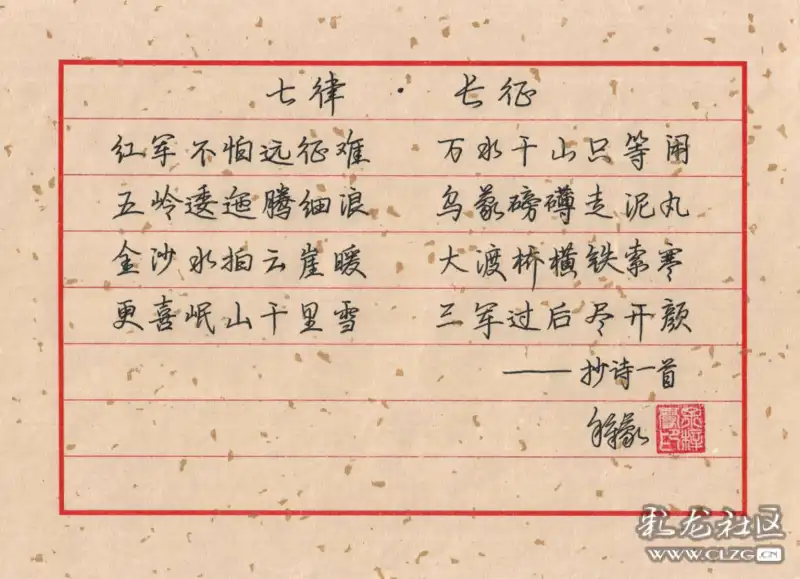 七律·长征
红军不怕远征难 万水千山只等闲
五岭逶迤腾细浪 乌蒙磅礴走泥丸
金沙水拍云崖暖 大渡桥横铁索寒
更喜岷山千里雪 三军过后尽开颜
——抄诗一首
彩龙社区
WWW.CLZG.CN